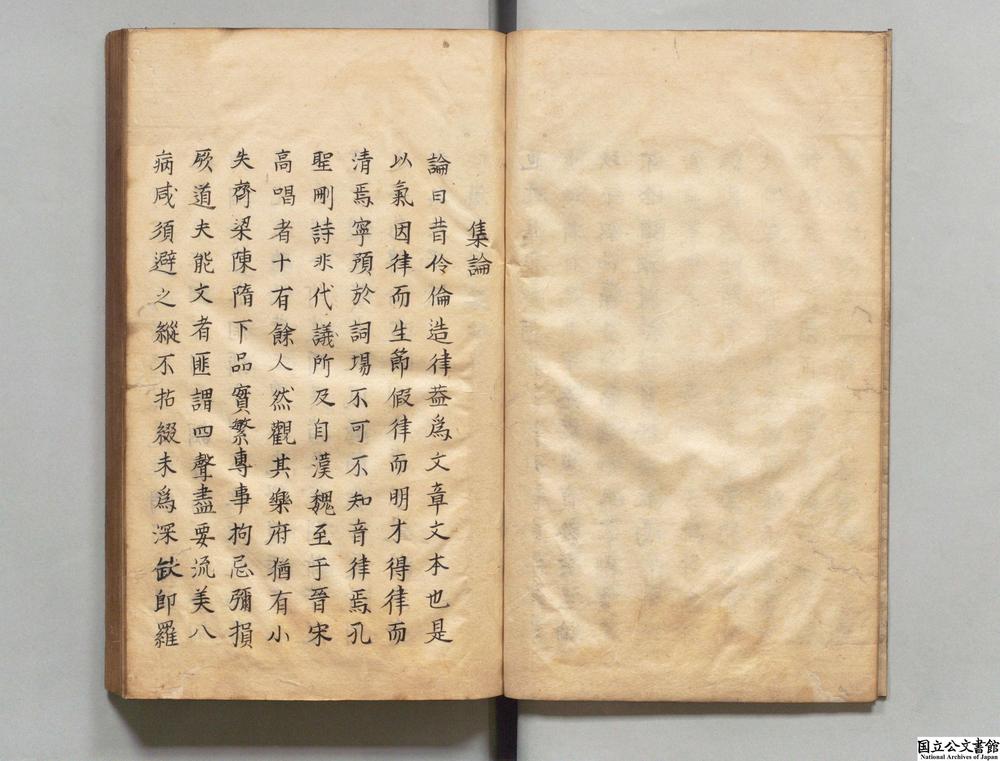 集論
論曰昔伶倫造律蓋爲文章文本也是
以氣因律而生節假律而明才得律而
清焉寧預於詞場不可不知音律焉孔
聖刪詩非代議所及自漢魏至于晉宋
高唱者十有餘人然觀其樂府猶有小
失齊梁陳隋下品實繁專事拘忌彌損
厥道夫能文者匪謂四聲盡要流美八
病咸須避之縱不拈綴未爲深缺即羅
国立公文書館
National Archives of Japan